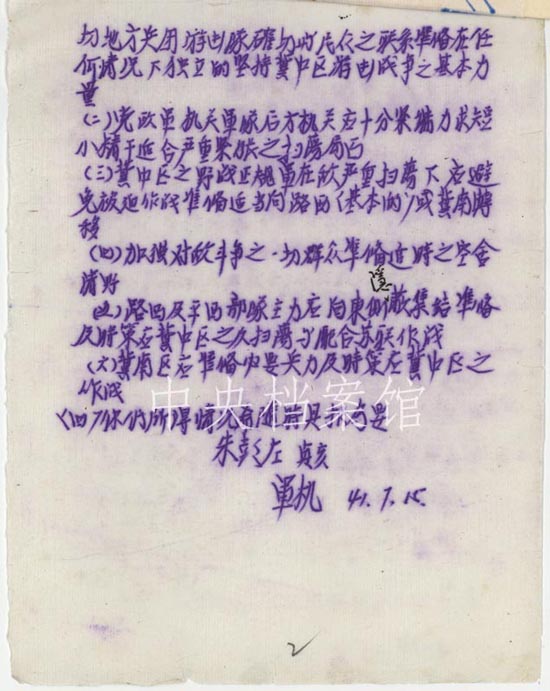 切地方兵团游击队确切的民众之联系准备在任
何情况下独立的坚持冀中区游击战争之基本力
量
(二)党政军机关军队后方机关应十分紧缩力求短
小精干适合严重紧张之扫荡局面
(三)冀中区之野战正规军在敌严重扫荡下应避
免被迫作战准备适当向路西(基本的)或冀南转
移
(四)加强对敌斗争之一切群众准备适时之空舍
清野
隐
(五)路西及平西部队主力应向东侧蔽集结准备
及时策应冀中区之反扫荡与配合苏联作战
(六)冀南区应准备兵力及时策应冀中区之
作战
(四)你们所得情况有
朱彭左 贞亥
军机 41.7.15.
中央档案馆
2